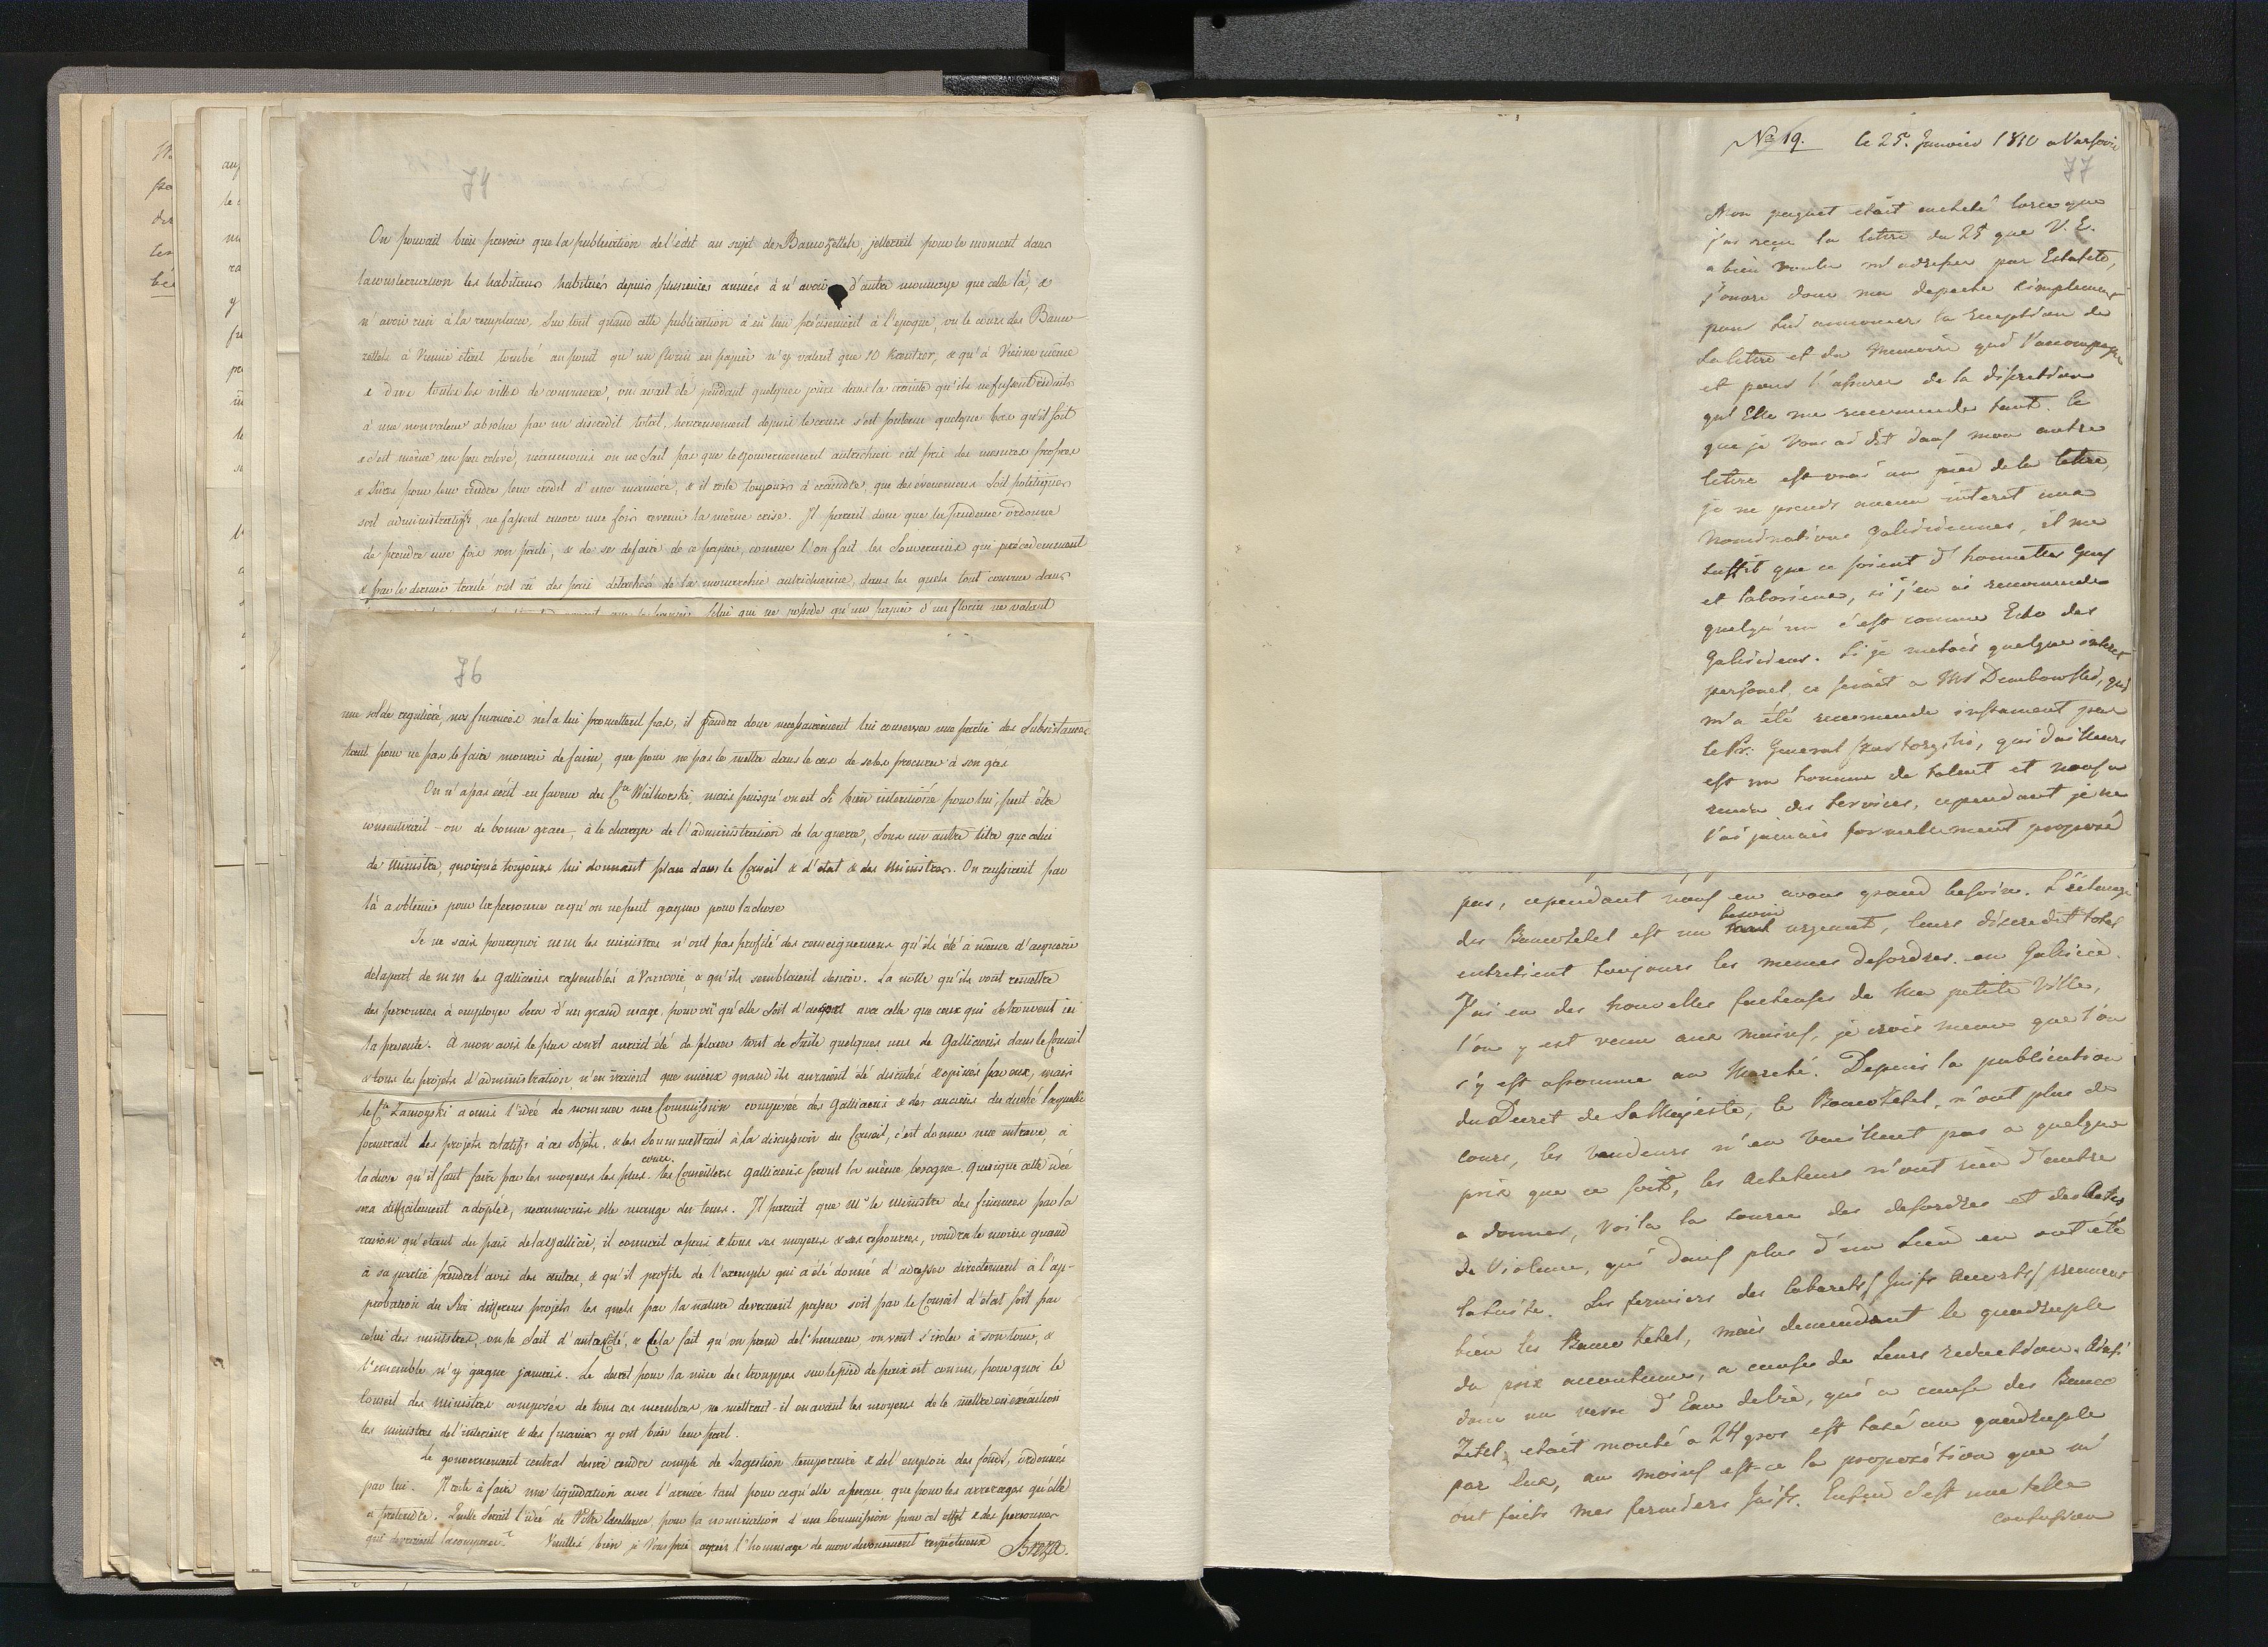 74
On pouvait bien prevoir que la publication de l'édit au sujet de Bancozettels, jetterait pour le moment dans
la consternation les habitans habitués depuis plusieures années à n'avoir d'autre monnaye que celle là, &
n'avoir rien à la remplacer, sur tout quand cette publication a eu lieu précisement à l'epoque, ou le cours des Banco-
zettels à Vienne étoit tombé au point qu'un florin en papier n'y valait que 10 Kreutzer, & qu'à Vienne même
& dans toutes les villes de commerce, on avait été pendant quelques jours dans la crainte qu'ils ne fussent réduits
à une nonvaleur absolue par un discredit total, heureusement depuis le cours s'est soutenu quelque bas qu'il soit
& s'est même un peu relevé, neanmoins on ne sait pas que le gouvernement autrichien ait pris des mesures propres
& sûres pour leur rendre leur credit d'une maniere, & il reste toujours à craindre, que des évenemens soit politiques
soit administratifs, ne fassent encore une fois revenir la même crise. Il parait donc que la prudence ordonne
de prendre une fois son parti, & de se defaire de ce papier, comme l'on fait les Souverains qui précédemment
& par le dernier traité ont eu des pais détachés de la monarchie autrichienne, dans les quels tout comme dans
celui qui ne possede qu'un papier d'un florin ne valant
76
une solde regulière, nos finances ne la lui promettent pas, il faudra donc necessairement lui conserver une partie des Subsistances
tant pour ne pas le faire mourir de faim, que pour ne pas le mettre dans le cas de se les procurer à son gré
On n'a pas écrit en faveur du Cte Wielhorski, mais puisqu'on est si bien intentionné pour lui, peut être
consentirait-on de bonne grace, à le charger de l'administration de la guerre, sous un autre titre que celui
de Ministre, quoique toujours lui donnant place dans le Conseil & d'état & des Ministres. On reussirait par
là a obtenir pour la personne ce qu'on ne peut gagner pour la chose
Je ne sais pourquoi mm les ministres n'ont pas profité des renseignemens qu'ils été à même d'acquerir
de la part de mm les Galliciens rassemblés à Varsovie, & qu'ils semblaient desirer. La notte qu'ils vont remettre
des personnes à employer sera d'un grand usage, pourvû qu'elle soit d'accord avec celle que ceux qui se trouvent ici
la presente. A mon avis le plus court aurait été de placer tout de suite quelques uns de Galliciens dans le Conseil
& tous les projets d'administration n'en iraient que mieux quand ils auraient été discutés & opinés par eux, mais
le Cte Zamoyski a emis l'idée de nommer une Commission composée des Galliciens & des anciens du duché laquelle
fournirait les projets relatifs à ces objets, & les soummettrait à la discussion du Conseil, c'est donner une entrave, à
la chose qu'il faut faire par les moyens les plus court. les Conseillers Galliciens feront la même besogne. Quoique cette idée
sera difficilement adoptée, neanmoins elle mange du tems. Il parait que Mr le Ministre des finances par la
raison qu'etant du pais de la Gallicie, il connait ce pais & tous ses moyens & ses ressources, voudra le moins quand
à sa partie prendre l'avis des autres, & qu'il profite de l'exemple qui a été donné d'adresser directement à l'ap-
probation du Roi differens projets les quels par la nature devraient passer soit par le Conseil d'état soit par
celui des ministres, on le sait d'autre coté, & cela fait qu'on prend de l'humeur, on veut s'isoler à son tour, &
l'ensemble n'y gagne jamais. Le decret pour la mise des trouppes sur le pied de paix est connu, pourquoi le
Conseil des Ministres composé de tous ces membres, ne mettrait-il en avant les moyens de le mettre en exécution
les ministres de l'interieur & des finances y ont bien leur part.
Le gouvernement central desire rendre compte de sa gestion temporaire & de l'emploie des fonds, ordonnés
par lui. Il reste à faire une liquidation avec l'armée tant pour ce qu'elle a perçue, que pour les arrerages qu'elle
a pretendre. Quelle serait l'idée de Votre Excellence, pour la nomination d'une Commission pour cet effet & des personnes
qui devraient la composer? Veuillés bien je Vous prie agréer l'hommage de mon devouement respectueux Breza.
No 19. le 25. Janvier 1810 a Varsovie
77
Mon paquet etait cacheté lorsque
j'ai reçu la lettre du 21 que V. E.
a bien voulu m'adresser par Estafete,
j'ouvre donc ma depeche simplement
pour Lui annoncer la reception de
Sa lettre et du Memoire qui l'accompagne
et pour l'assurer de la discretion
qu'Elle me recommende tant. Ce
que je Vous ai dit dans mon autre
lettre est vrai au pied de la lettre,
je ne prends aucun interet aux
nominations galiciennes, il me
suffit que ce soient d'honnettes gens
et laborieux, si j'en ai recommendé
quelqu'un c'est comme Echo des
Galiciens. Si je mettois quelque interet
personel, ce serait a Mr Dembowski, qui
m'a été recomendé instament par
le Pr: General Czartoryski, qui d'ailleurs
est un homme de talent et nous a
rendu des services, cependant je ne
l'ai jamais formellement proposé
pas, cependant nous en avons grand besoin. L'échange
des Bancozetel est un besoin urgeant, leurs discredit total
entretient toujours les memes desordres en Galicie.
J'ai eu des nouvelles facheuses de ma petite Ville,
l'on y est venu aux mains, je crois meme que l'on
s'y est assomme au Marché. Depuis la publication
du Decret de Sa Majesté, le Bancozetel, n'ont plus de
cours, les vendeurs n'en veuillent pas a quelque
prix que ce soit, les acheteurs n'ont rien d'autre
a donner, voila la source des desordres et des actes
de violence, qui dans plus d'un lieu en ont été
la suite. Les fermiers des Cabarets (Juifs averts) prennent
bien les Banco Zetel, mais demendant le quadruple
du prix accoutumé, a cause de leurs reduction. Ainsi
donc un verre d'Eau de vie, qui a cause des Banco
Zetel, etait monté a 24 gros est taxé au quadruple
par eux, au moins est-ce la proposition que m'
ont faits mes fermiers Juifs. Enfin c'est une telle
confusion